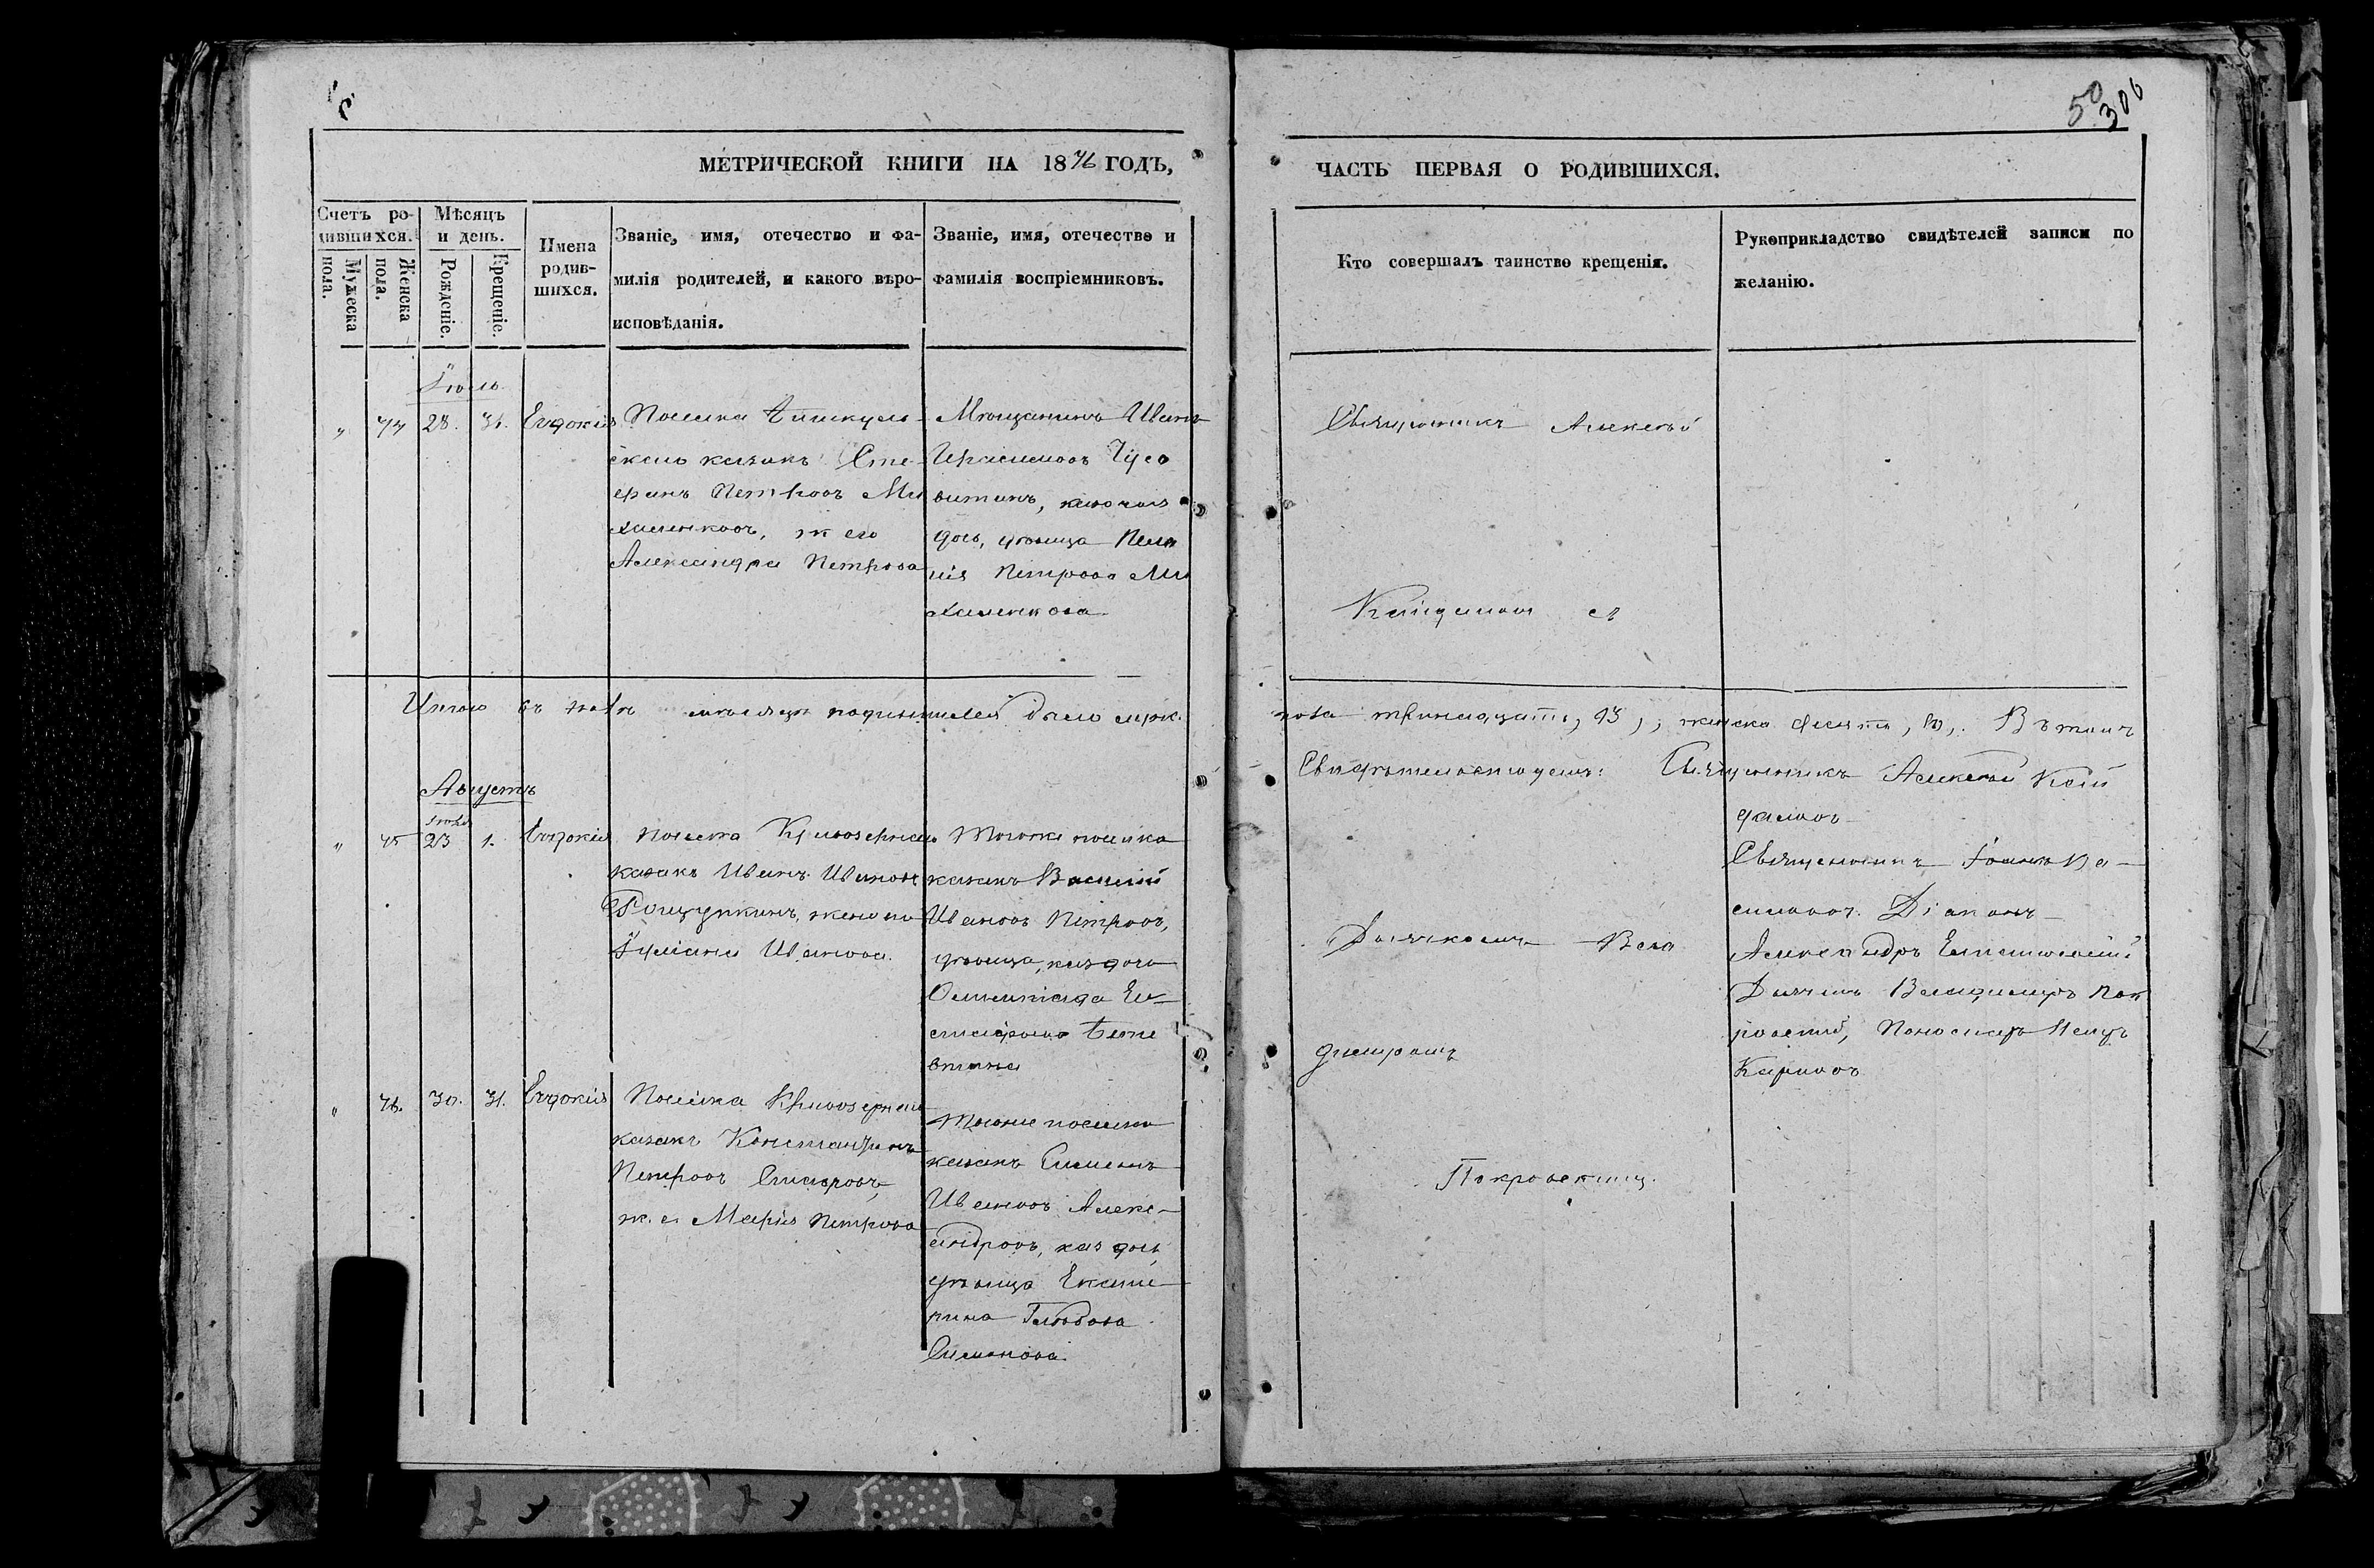 50
306
МЕТРИЧЕСКОЙ КНИГИ НА 1876 ГОДЪ,
ЧАСТЬ ПЕРВАЯ О РОДИВШИХСЯ.
Счетъ ро-
дившихся.
Мужеска
пола.
Женска
пола.
Мѣсяцъ
и день.
Рожденіе.
Крещеніе.
Имена
родив-
шихся.
Званіе, имя, отечество и фа-
милія родителей, и какого вѣро-
исповѣданія.
Званіе, имя, отечество и
фамилія воспріемниковъ.
Кто совершалъ таинство крещенія.
Рукоприкладство свидѣтелей записи по
желанію.
Іюль
" 28. 31. Евдокія
Поселка
казакъ Сте-
фанъ Петровъ Ми
халенковъ, ж его
Александра Петрова
Мѣщанинъ Иванъ
витинъ,
дочь, дѣвица
Петрова Ми
халенкова
Священникъ Алексѣй
Кайдаловъ
Итого въ Іюлѣ мѣсяцѣ родившихся было муж.
пола тринадцать, 13, женска десять, 10,. Въ томъ
Свидѣтельствуемъ: Священникъ Алексѣй Кай
даловъ
Августъ
Іюля
" 75 23 1. Евдокія
поселка
казакъ Иванъ Ивановъ
жена его
Іуліана Иванова.
Тогоже поселка
казакъ Василій
Ивановъ Петровъ,
дѣвица, каз дочь
Олимпіада
Дьячкомъ Вла
димиромъ
Покровскимъ.
Священникъ Іоаннъ Ва-
силовъ. Діаконъ
Александръ
Дьячекъ Владимиръ Пок
ровскій, Пономарь
Каримовъ
" 76. 30. 31. Евдокія
Поселка
казакъ Константинъ
Петровъ
ж. е. Марія Петрова
Тогоже поселка
казакъ Симеонъ
Ивановъ Алекс-
андровъ, каз дочь
дѣвица Екате
рина Глѣбова
Симонова